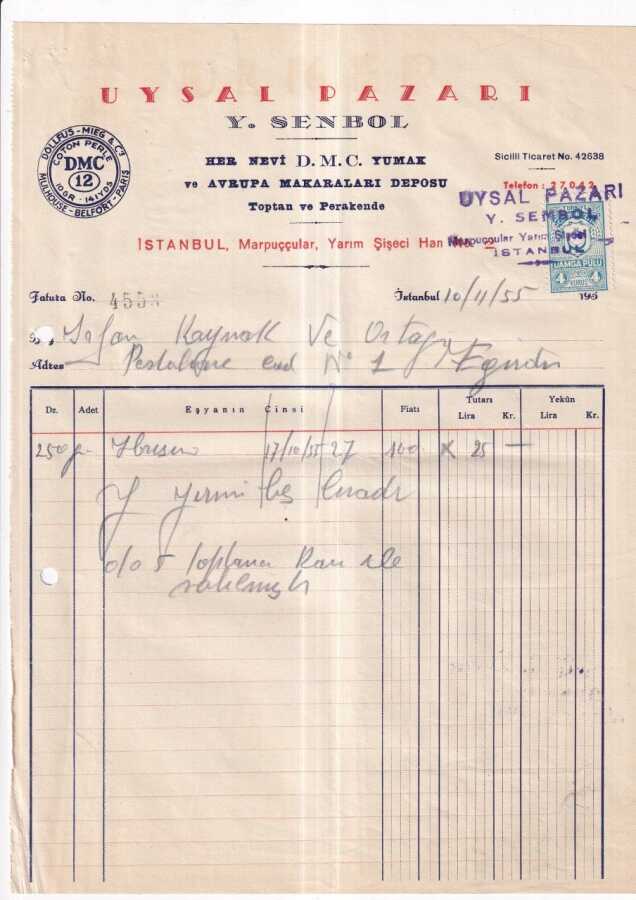 UYSAL PAZARI
Y. SENBOL
DOLLFUS-MIEG & Cie
COTON PERLE
DMC
12
10 GR - 141 YDS
MULHOUSE-BELFORT-PARIS
HER NEVİ D.M.C. YUMAK
ve AVRUPA MAKARALARI DEPOSU
Toptan ve Perakende
Sicilli Ticaret No. 42638
Telefon : 27042
İSTANBUL, Marpuççular, Yarım Şişeci Han No.
UYSAL PAZARI
Y. SEMBOL
Marpuççular Yarım Şişeci
İSTANBUL
DAMGA PULU
4 KURUŞ 4
Fatura No. 4558
İstanbul 10/11/55 195
Kaynak ve Ortağı
Adres Pestalope cad No 1
Dz. Adet Eşyanın Cinsi Fiatı Tutarı Lira Kr. Yekûn Lira Kr.
250 İbrişim 17/10/55 27 100 X 25 —
Y yirmi beş liradır
% 5 toptancı karı ile
satılmıştır